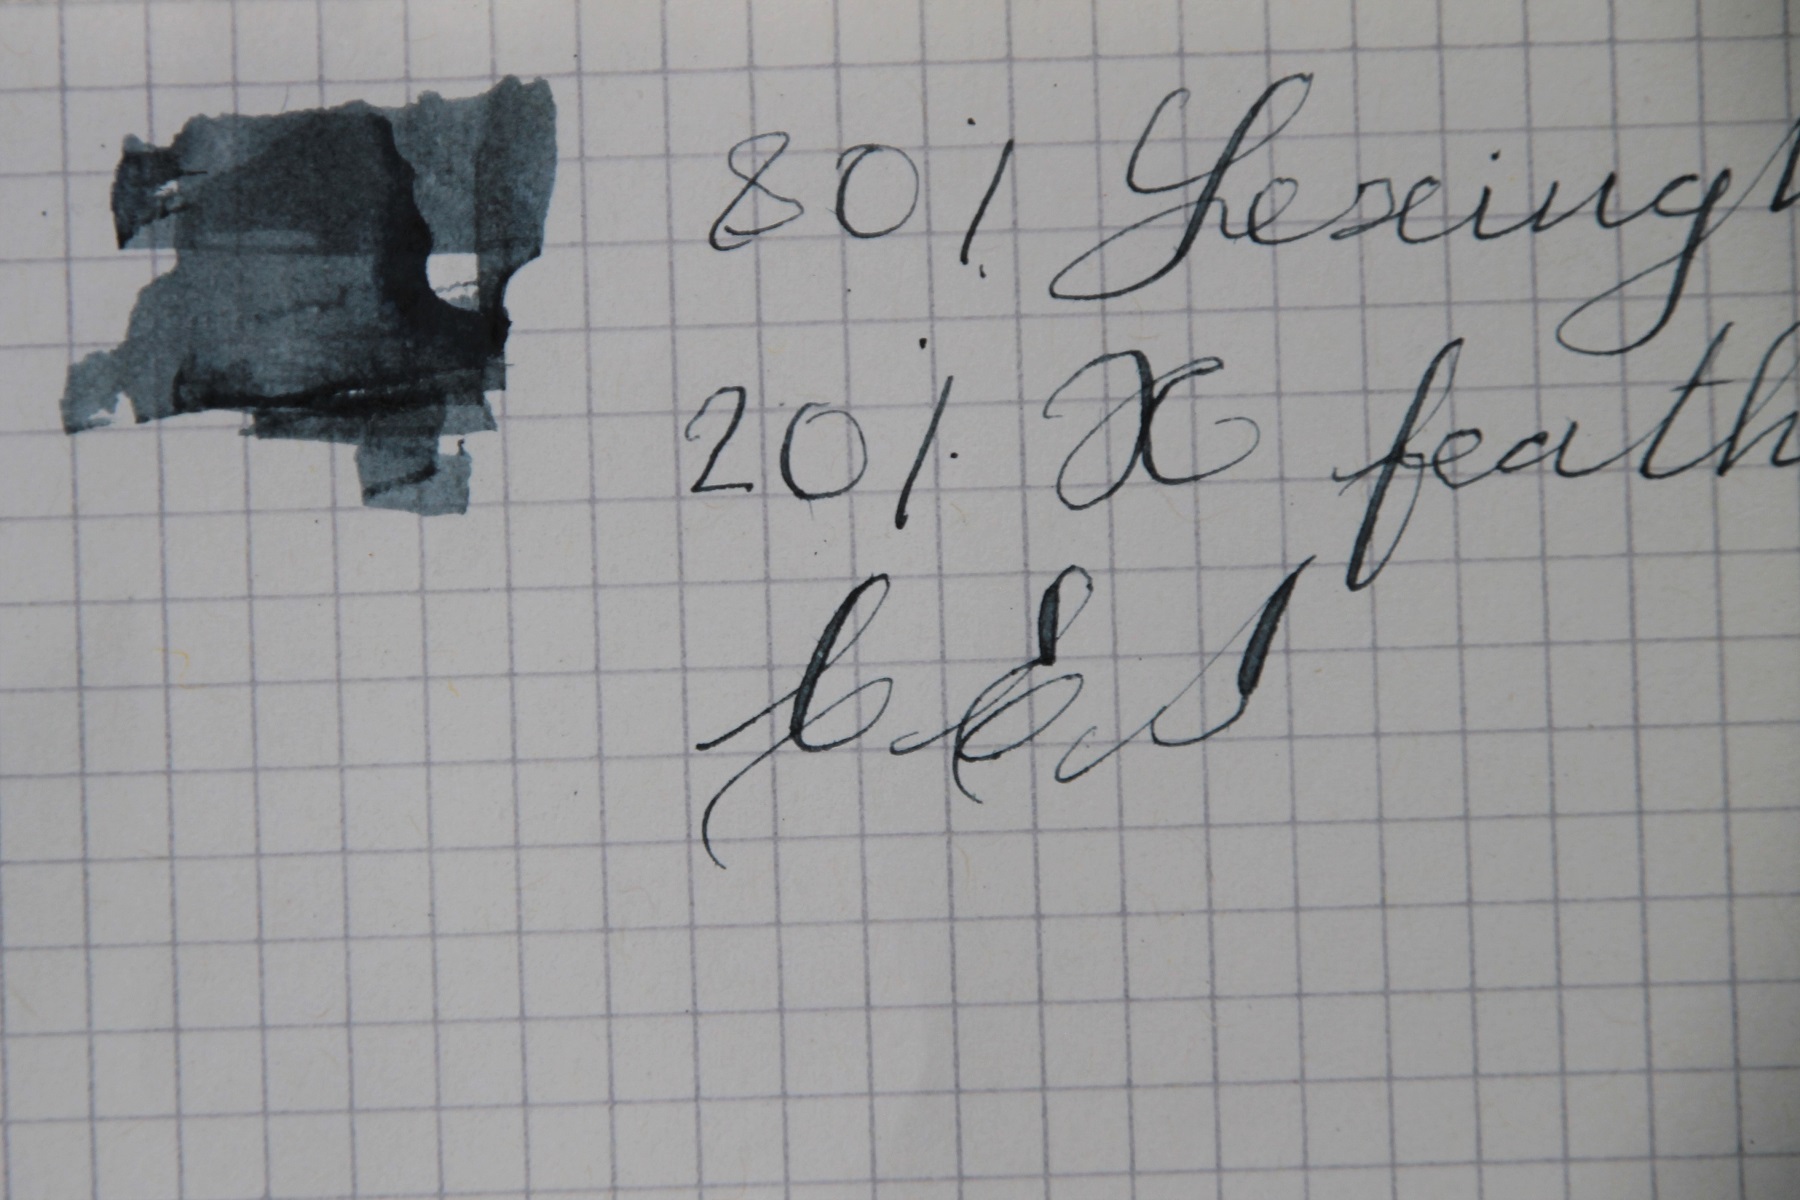 80% Lexingt
20% X feath